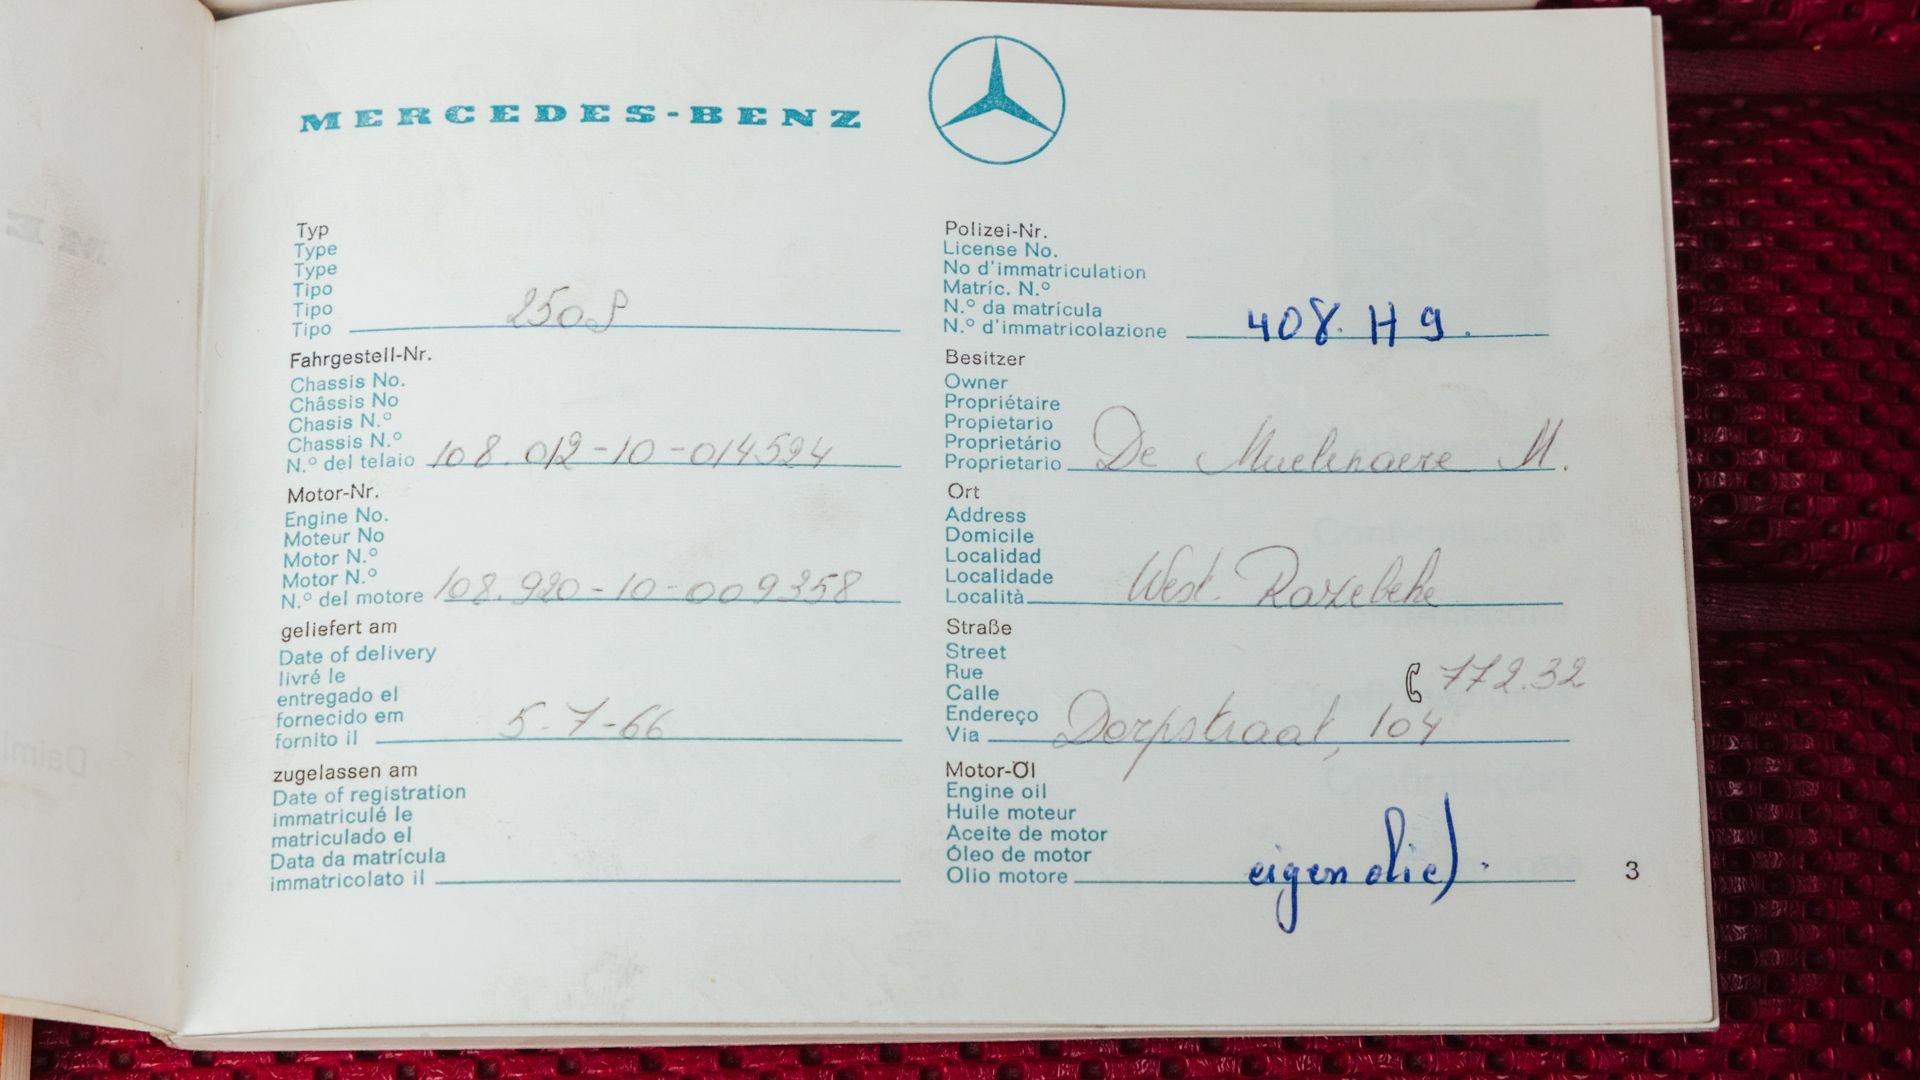 MERCEDES-BENZ
Typ
Type
Type
Tipo
Tipo
Tipo 250S
Fahrgestell-Nr.
Chassis No.
Châssis No
Chasis N.º
Chassis N.º
N.º del telaio 108.012-10-014524
Motor-Nr.
Engine No.
Moteur No
Motor N.º
Motor N.º
N.º del motore 108.920-10-009358
geliefert am
Date of delivery
livré le
entregado el
fornecido em
fornito il 5-7-66
zugelassen am
Date of registration
immatriculé le
matriculado el
Data da matrícula
immatricolato il
Polizei-Nr.
License No.
No d'immatriculation
Matríc. N.º
N.º da matrícula
N.º d'immatricolazione 408.H9.
Besitzer
Owner
Propriétaire
Propietario
Proprietário
Proprietario De Muelenaere M.
Ort
Address
Domicile
Localidad
Localidade
Località West. Rozebeke
Straße
Street
Rue
Calle 772.32
Endereço
Via Dorpstraat, 104
Motor-Öl
Engine oil
Huile moteur
Aceite de motor
Óleo de motor
Olio motore eigen olie) .
3